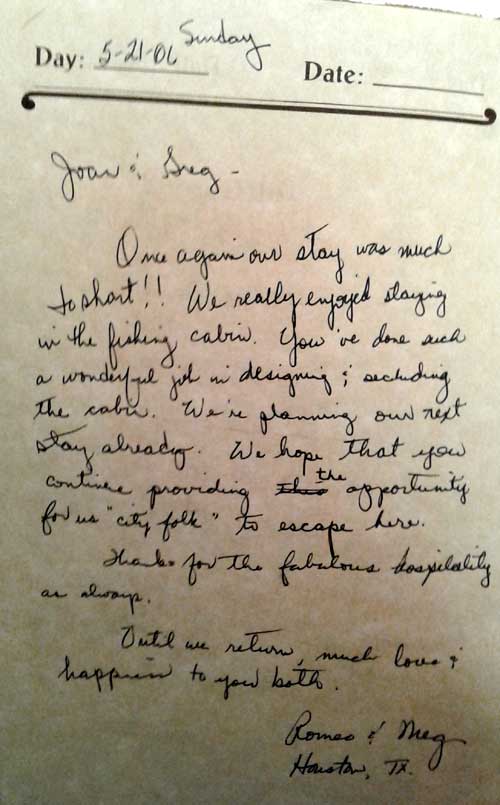 Day: 5-21-06 Sunday
Date:
Joan & Greg -
Once again our stay was much
to short!! We really enjoyed staying
in the fishing cabin. You've done such
a wonderful job in designing & secluding
the cabin. We're planning our next
stay already. We hope that you
continue providing the opportunity
for us "city folk" to escape here.
Thanks for the fabulous hospitality
as always.
Until we return, much love &
happiness to you both.
Romeo & Meg
Houston, TX.